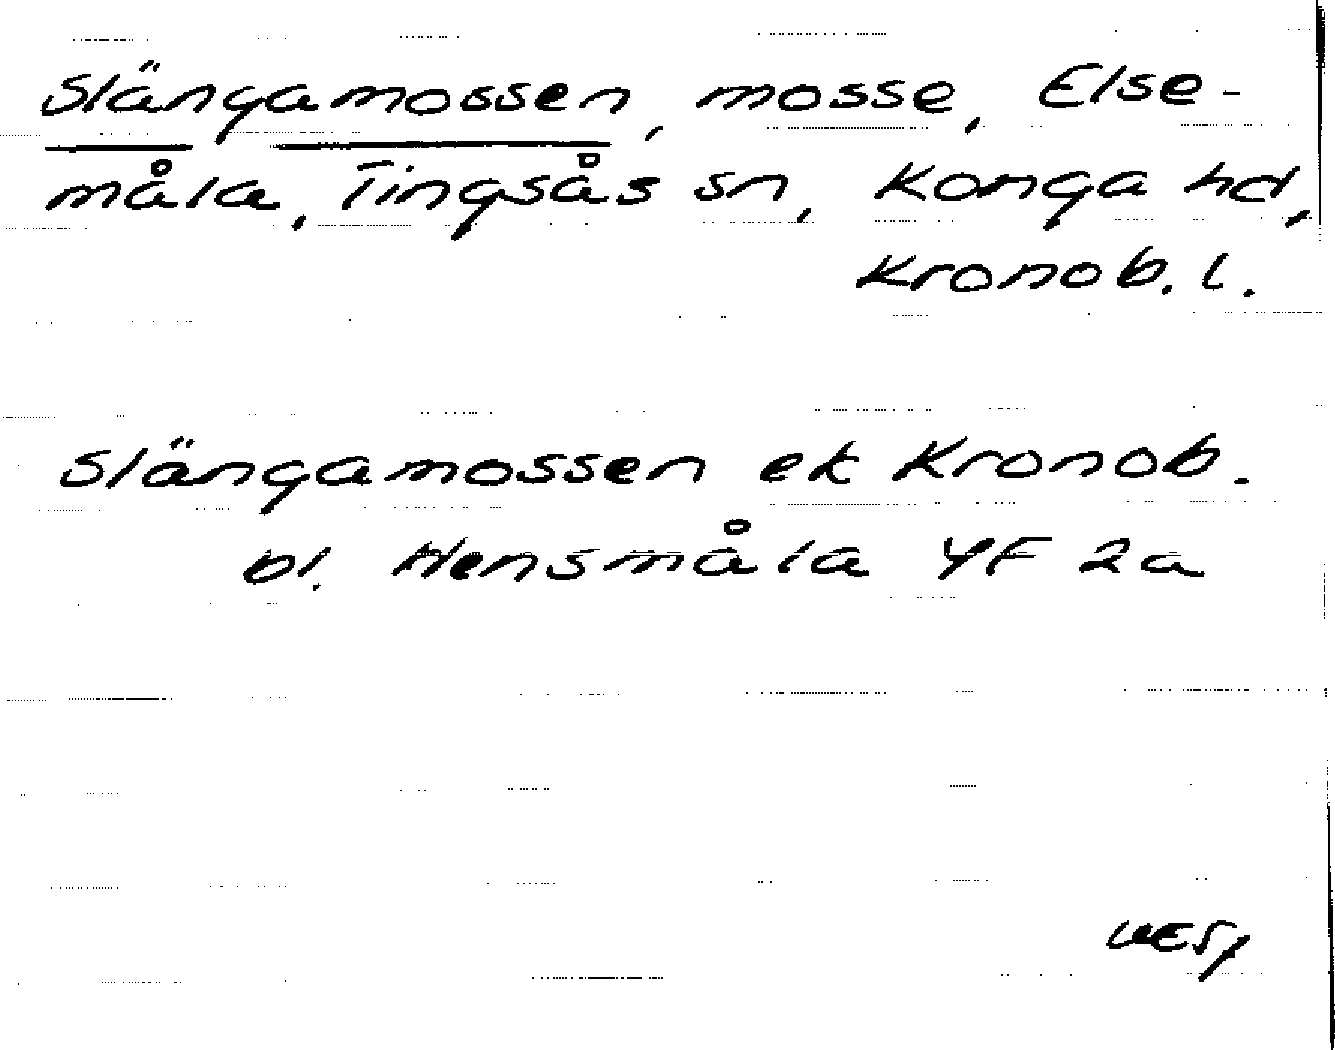 Slängamossen, mosse, Else-
måla, Tingsås sn, Konga hd,
Kronob. l.
Slängamossen ek Kronob.
bl. Hensmåla 4F 2a